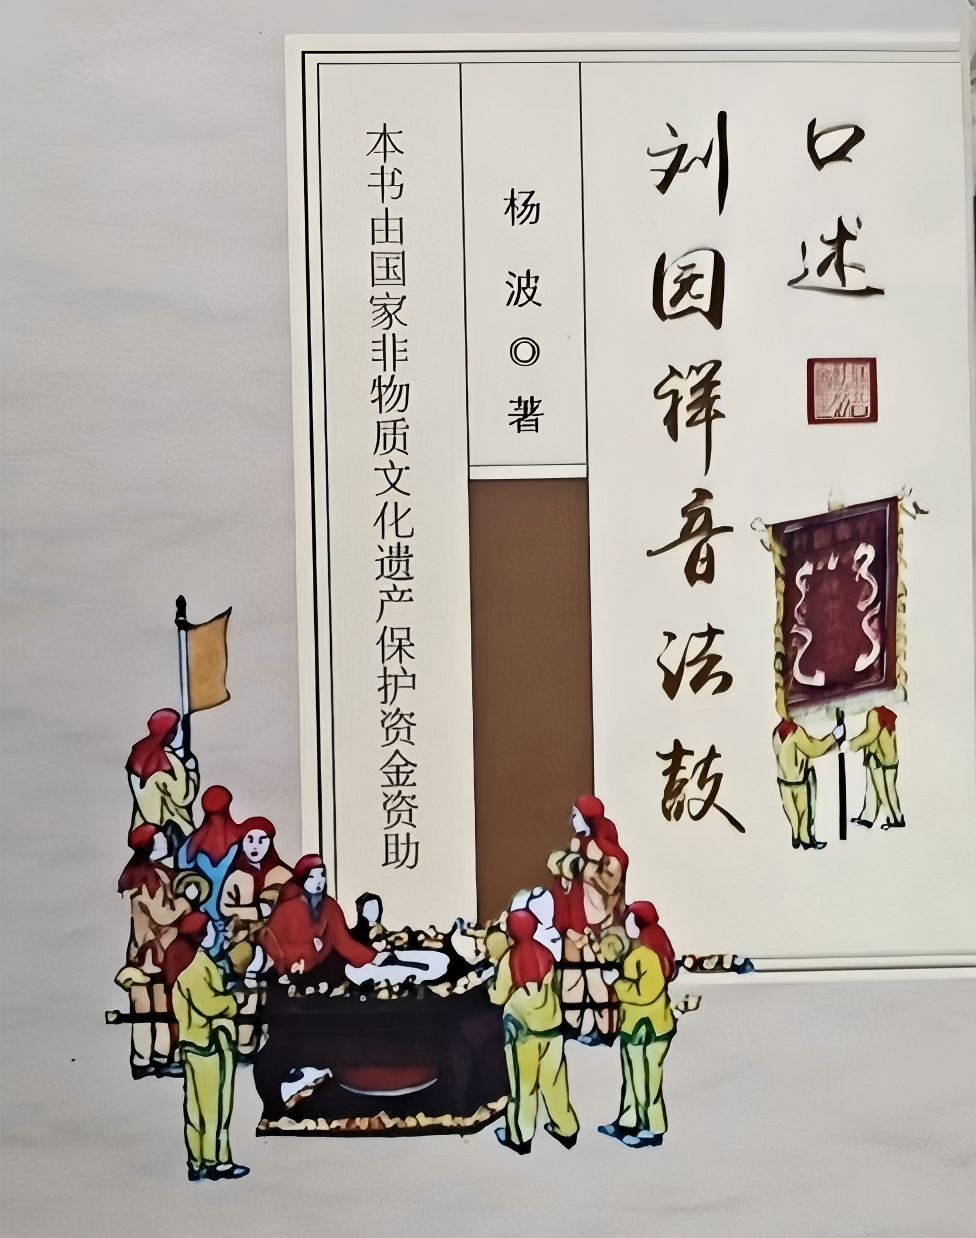 口述
刘园祥音法鼓
杨波◎著
本书由国家非物质文化遗产保护资金资助